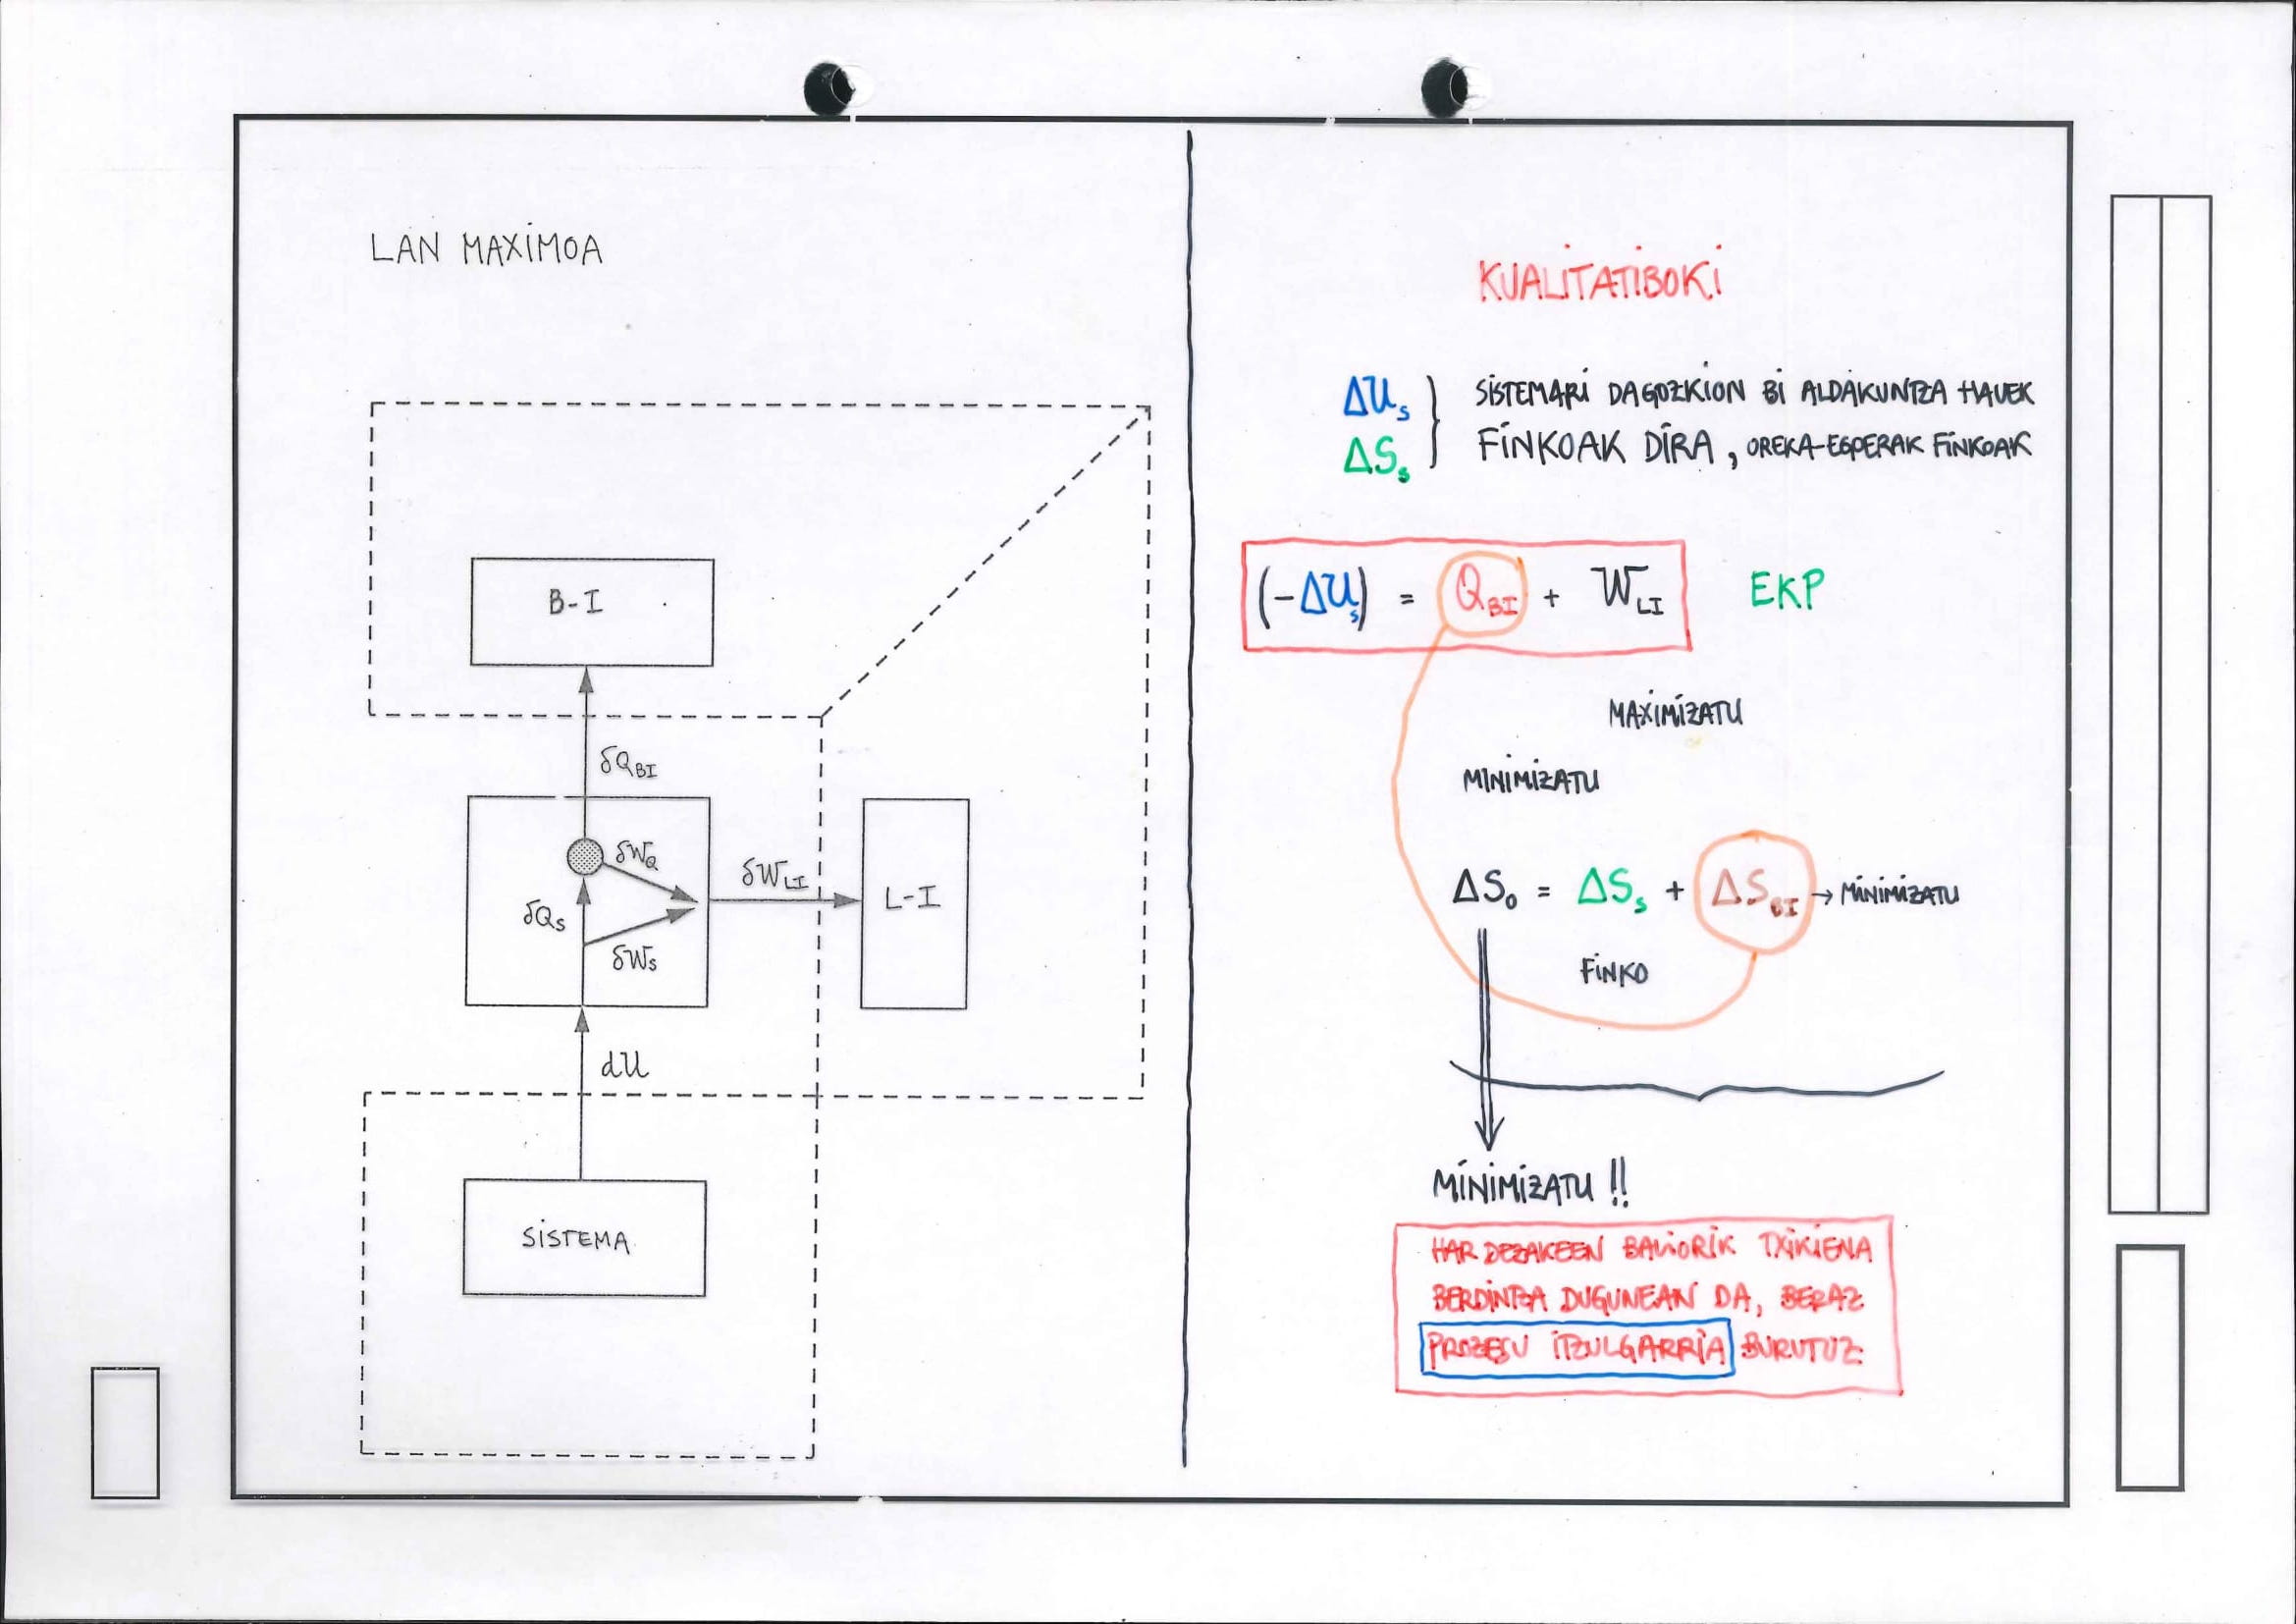 LAN MAXIMOA
B-I
δQBI
δWQ
δQS
δWS
δWLI
L-I
dU
SISTEMA
KUALITATIBOKI
ΔUs
ΔSs
SISTEMARI DAGOZKION BI ALDAKUNTZA HAUEK
FINKOAK DIRA, OREKA-EGOERAK FINKOAK
(-ΔUs) = QBI + WLI EKP
MAXIMIZATU
MINIMIZATU
ΔS0 = ΔSs + ΔSBI → MINIMIZATU
FINKO
MINIMIZATU !!
HAR DEZAKEEN BALIORIK TXIKIENA
BERDINTZA DUGUNEAN DA, BERAZ
PROZESU ITZULGARRIA BURUTUZ.